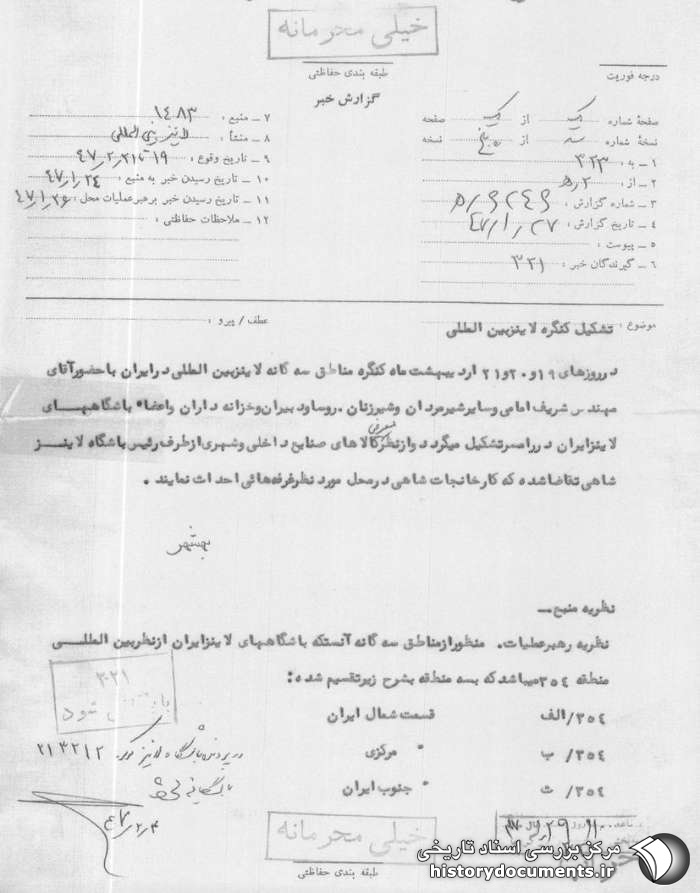 خیلی محرمانه
طبقه بندی حفاظتی
درجه فوریت
گزارش خبر
صفحهٔ شماره یک از یک صفحه
نسخهٔ شماره سه از پنج نسخه
۱ – به : ۳۲۳
۲ – از : ۲ ه‍
۳ – شماره گزارش :
۴ – تاریخ گزارش : ۴۷/۱/۲۷
۵ – پیوست :
۶ – گیرندگان خبر : ۳۲۱
۷ – منبع : ۱۴۸۳
۸ – منشأ : لاینز بین المللی
۹ – تاریخ وقوع : ۱۹ تا ۴۷/۲/۲۱
۱۰ – تاریخ رسیدن خبر به منبع : ۴۷/۱/۲۴
۱۱ – تاریخ رسیدن خبر برهبر عملیات محل : ۴۷/۱/۲۶
۱۲ – ملاحظات حفاظتی :
موضوع : تشکیل کنگره لاینزبین المللی
عطف / پیرو :
درروزهای ۱۹و۲۰و۲۱ اردیبهشت ماه کنگره مناطق سه گانه لاینزبین المللی درایران باحضورآقای
مهندس شریف امامی وسایرشیرمردان وشیرزنان . روساودبیران وخزانه داران واعضاء باشگاههای
لاینزایران دررامسرتشکیل میگردد وازنظر معرفی کالاهای صنایع داخلی وشهری ازطرف رئیس باشگاه لاینز
شاهی تقاضاشده که کارخانجات شاهی درمحل مورد نظرغرفه‌هائی احداث نمایند .
بهشهر
نظریه منبع –
نظریه رهبرعملیات . منظورازمناطق سه گانه آنستکه باشگاههای لاینزایران ازنظربین المللی
منطقه ۳۵۴ میباشد که بسه منطقه بشرح زیرتقسیم شده :
۳۵۴/ الف قسمت شمال ایران
۳۵۴/ ب " مرکزی
۳۵۴/ ث " جنوب ایران
۳۲۱
شود
در پرونده باشگاه لاینز ۲۱۳۲۱۲
بایگانی شود
۴۷/۲/۴
خیلی محرمانه
طبقه بندی حفاظتی
مرکز بررسی اسناد تاریخی
historydocuments.ir